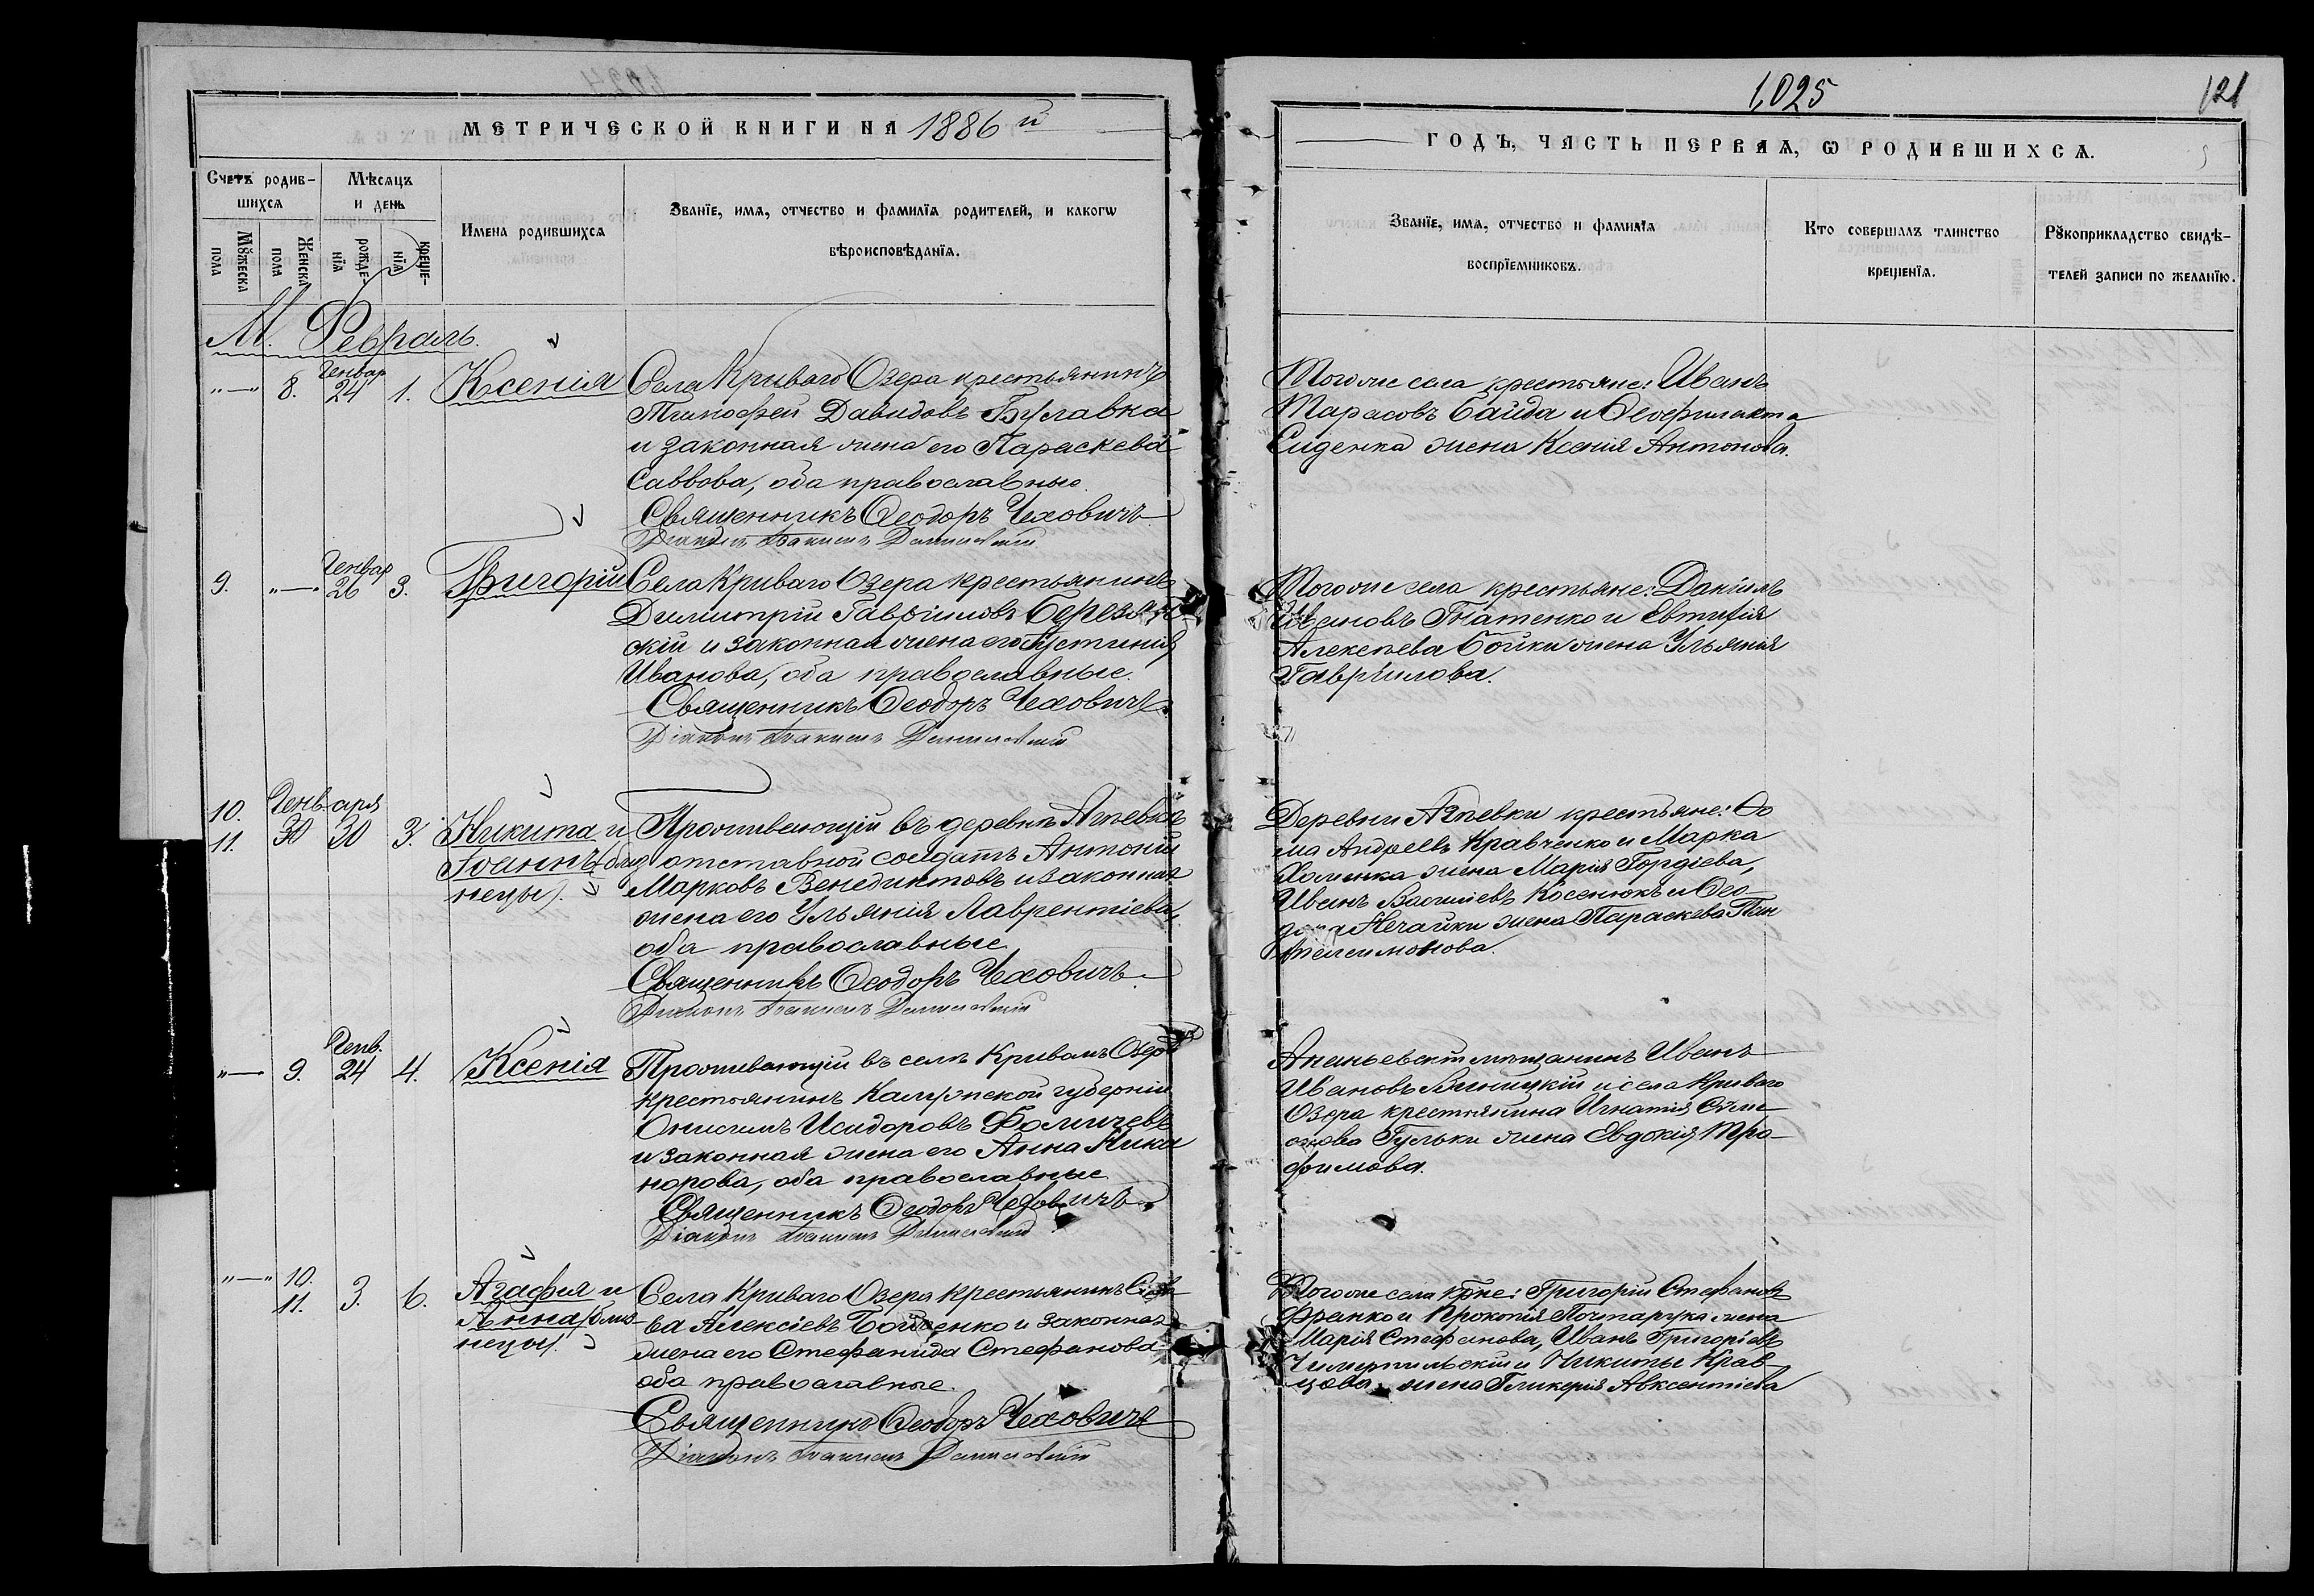 1,025
121
МЕТРИЧЕСКОЙ КНИГИ НА 1886 й
ГОДЪ, ЧАСТЬ ПЕРВАЯ, Ѡ РОДИВШИХСѦ.
Счетъ родив-
шихсѧ
Мѣсѧцъ
и день
Мꙋжеска
пола
Женска
пола
рожде-
нїѧ
креще-
нїѧ
Имена родившихсѧ
Званїе, имѧ, отчество и фамилїѧ родителей, и какогѡ
вѣроисповѣданїѧ.
Званїе, имѧ, отчество и фамилїѧ
воспрїемниковъ.
Кто совершалъ таинство
крещенїѧ.
Рꙋкоприкладство свидѣ-
телей записи по желанїю.
М. Февраль.
„—„ 8. Генвар 24 1. Ксенія
Села Криваго Озера крестьянинъ
Тимофей Давидовъ Буславка
и законная жена его Параскева
Саввова, оба православные.
Священникъ Ѳеодоръ Чеховичъ
Діаконъ
Тогоже села крестьяне: Иванъ
Тарасовъ Байда и Ѳеофилакта
Сиденка жена Ксенія Антонова.
9. „—„ Генвар 26 3. Григорій
Села Криваго Озера крестьянинъ
Димитрій Гавріиловъ Березов-
скій и законная жена его Іустинія
Иванова, оба православные.
Священникъ Ѳеодоръ Чеховичъ.
Діаконъ
Тогоже села крестьяне: Даніилъ
Ивановъ Гнатенко и Евтихія
Алексѣева Бойки жена Ульянія
Гавріилова.
10.
11. Генваря
30 30 3. Никита и
Іоаннъ (близ
нецы).
Проживающій въ деревнѣ
отставной солдатъ Антоній
Марковъ Венедиктовъ и законная
жена его Ульянія Лаврентіева,
оба православные
Священникъ Ѳеодоръ Чеховичъ.
Діаконъ
Деревни крестьяне: Ѳо
ма Андреевъ Кравченко и Марка
Хоменка жена Марія Гордіева,
Иванъ Василіевъ Косенюкъ и Ѳео-
дора Нечайки жена Параскева Пан
телеимонова.
„— 9. Генв. 24 4. Ксенія
Проживающій въ селѣ Кривомъ Озерѣ
крестьянинъ Калужской губерніи
Онисимъ Исидоровъ Фомичевъ
и законная жена его Анна Ника
норова, оба православные
Священникъ Ѳеодоръ Чеховичъ.
Діаконъ
Ананьевскій мѣщанинъ Иванъ
Ивановъ Виницкій и села Криваго
Озера крестьянина Игнатія Симе-
онова Гульки жена Евдокія Тро-
фимова.
„—„ 10.
11. 3. 6. Агафія и
Анна (близ-
нецы).
Села Криваго Озера крестьянинъ
ва Алексіевъ и законная
жена его Стефанида Стефанова
оба православные.
Священникъ Ѳеодоръ Чеховичъ
Діаконъ
Тогоже села кр̃не: Григорій Стефановъ
Франко и Прокопія Почтарука жена
Марія Стефанова, Иванъ Григорьевъ
и Никиты Крав-
цова жена Гликерія Авксентіева